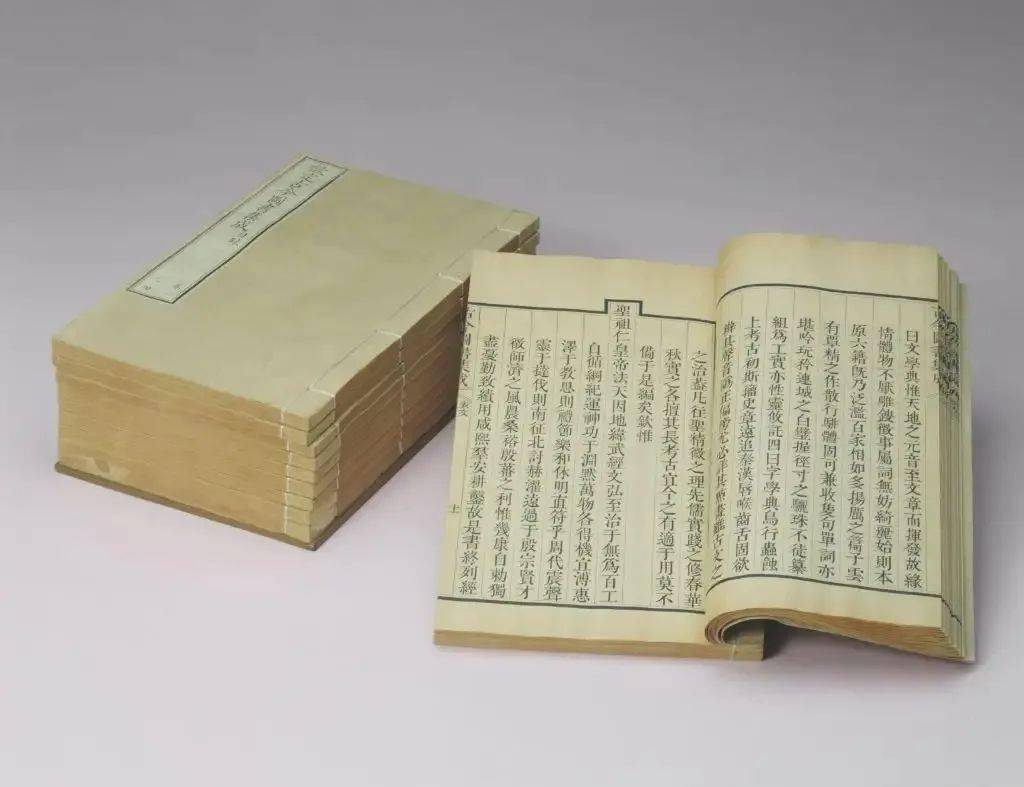 欽定古今圖書集成
古今圖書集成
曰文學典惟天地之元音至文章而揮發故緣
情體物不厭雕鎪徵事屬詞無妨綺麗始則本
原六籍旣乃泛濫百家相如多揚厲之篇子雲
有覃精之作散行駢體固可兼收隻句單詞亦
堪吟玩矜連城之白璧握徑寸之驪珠不徒纂
組爲工實亦性靈攸託四曰字學典鳥行蟲蝕
上考古初斯籀史章遠追秦漢唇喉齒舌固欲
辨其聲音訛正偏旁尤必
之治蓋凡往聖精微之理先儒實踐之修春華
秋實之各擅其長考古宜今之有適于用莫不
備于是編矣欽惟
聖祖仁皇帝法天因地緯武經文弘至治于無爲百工
自飭綱紀運神功于淵黙萬物各得機宜溥惠
澤于敎思則禮節樂和休明直符乎周代震聲
靈于撻伐則南征北討赫濯遠過于殷宗賢才
徵師濟之風農桑裕殷蕃之利惟幾康自勅獨
盡憂勤致殖用咸熙羣安耕鑿故是書終列經
古今圖書集成 表文 十一